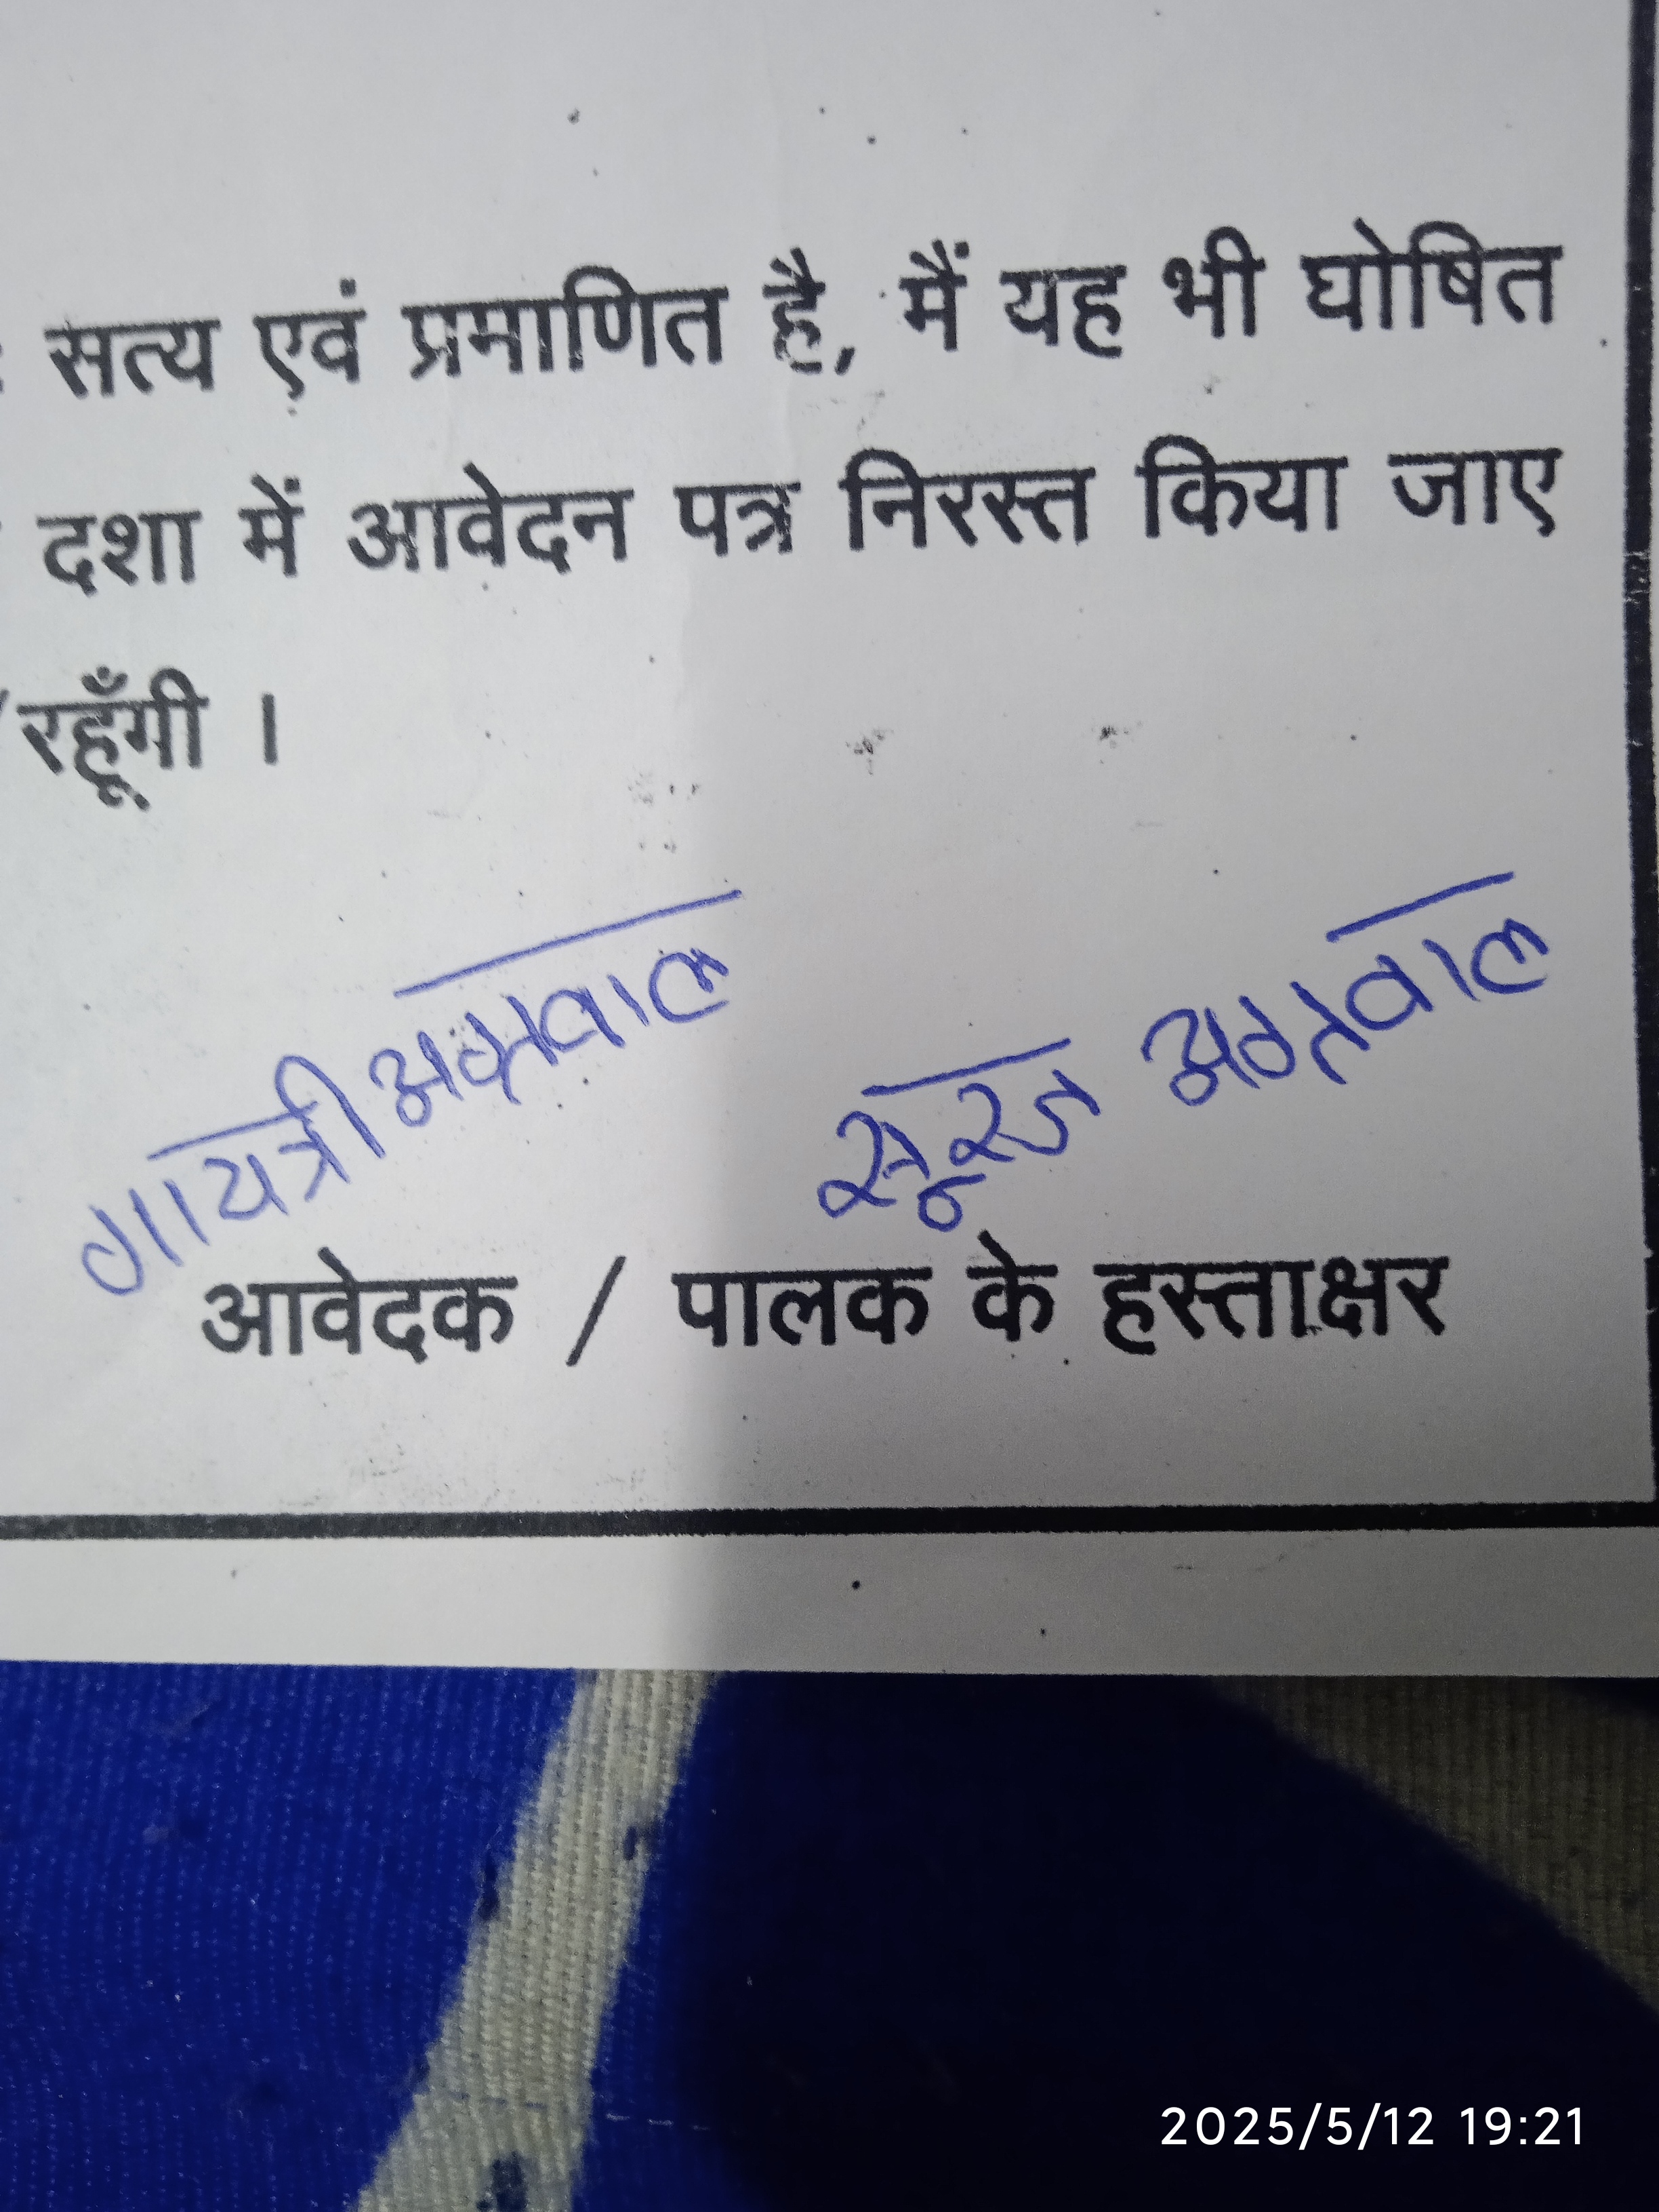 सत्य एवं प्रमाणित है, मैं यह भी घोषित
दशा में आवेदन पत्र निरस्त किया जाए
रहूँगी ।
गायत्री अग्रवाल सूरज अग्रवाल
आवेदक / पालक के हस्ताक्षर
2025/5/12 19:21